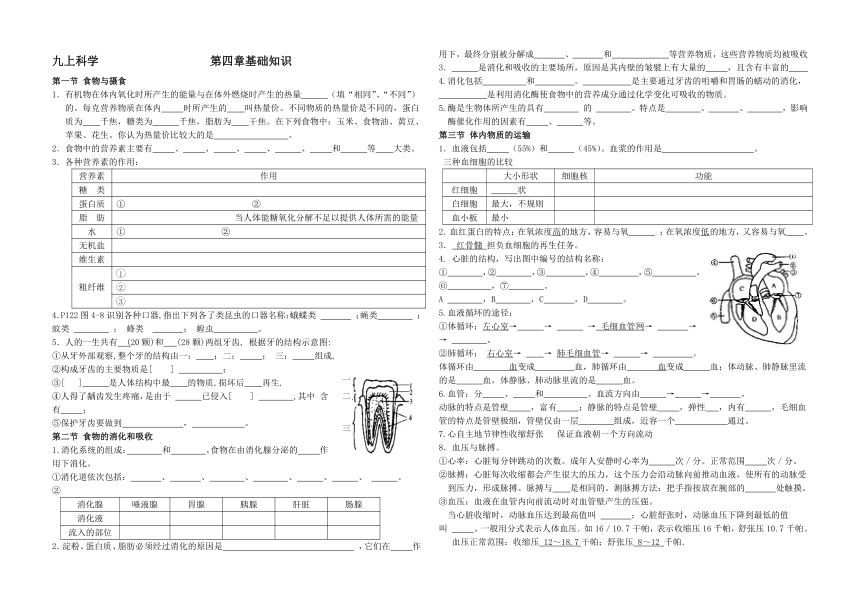 九上科学 第四章基础知识
第一节 食物与摄食
1. 有机物在体内氧化时所产生的能量与在体外燃烧时产生的热量______(填“相同”、“不同”)
的。每克营养物质在体内_____时所产生的____叫热量价。不同物质的热量价是不同的,蛋白
质为____千焦,糖类为______千焦,脂肪为____干焦。在下列食物中:玉米、食物油、黄豆、
苹果、花生。你认为热量价比较大的是________________。
2. 食物中的营养素主要有_____、_____、_____、_____、______、_____和______等____大类。
3. 各种营养素的作用:
营养素 作用
糖 类
蛋白质 ① ②
脂 肪 当人体能糖氧化分解不足以提供人体所需的能量
水 ① ②
无机盐
维生素
粗纤维 ①
②
③
4.P122 图 4-8 识别各种口器,指出下列各了类昆虫的口器名称:蛾蝶类 _______ ;蝇类________ ;
蚊类 ________ ; 蜂类 _______ ; 蝗虫__________。
5. 人的一生共有__(20 颗)和___(28 颗)两组牙齿, 根据牙的结构示意图:
①从牙外部观察,整个牙的结构由一:____;二:_____; 三:_____组成,
②构成牙齿的主要物质是[ ] __________;
③[ ]______是人体结构中最____的物质,损坏后____再生.
④人得了龋齿发生疼痛,是由于 ______已侵入[ ] ________,其中 含
有_____;
⑤保护牙齿要做到______________, ____________。
一 二 三
1 2 3 4
第二节 食物的消化和吸收
1.消化系统的组成:________和________。食物在由消化腺分泌的_____作
用下消化。
①消化道依次包括:_______、_______、________、________、______、______、 ______。
②
消化腺 唾液腺 胃腺 胰腺 肝脏 肠腺
消化液
流入的部位
2. 淀粉、蛋白质、脂肪必须经过消化的原因是______________________________ ,它们在_____作
用下, 最终分别被分解成_______、_______和_____________等营养物质,这些营养物质均被吸收
3. ______是消化和吸收的主要场所, 原因是其内壁的皱襞上有大量的_____,且含有丰富的____
4.消化包括__________和________。 ___________是主要通过牙齿的咀嚼和胃肠的蠕动的消化,
___________是利用消化酶使食物中的营养成分通过化学变化可吸收的物质。
5.酶是生物体所产生的具有________ 的 ________。特点是________、_______、________,影响
酶催化作用的因素有_____、______等。
第三节 体内物质的运输
1. 血液包括_____(55%)和______(45%)。血浆的作用是____________________。
三种血细胞的比较
大小形状 细胞核 功能
红细胞 ______状
白细胞 最大,不规则
血小板 最小
2. 血红蛋白的特点:在氧浓度高的地方,容易与氧______ ;在氧浓度低的地方,又容易与氧____。
3. 红骨髓 担负血细胞的再生任务。
4. 心脏的结构,写出图中编号的结构名称:
①________,②________,③________,④_________,⑤__________,
⑥__________,⑦________。
A ________,B________,C_______,D_______。
① ② ③ ④ ⑤ ⑥ ⑦ A B C D
5.血液循环的途径:
①体循环: 左心室→______→ ______ →_毛细血管网→_____ →_____→
→ _______。
②肺循环: 右心室→ ____→ 肺毛细血管→ ______→ _________。
体循环由________血变成________血,肺循环由________血变成______血;体动脉、肺静脉里流
的是______血,体静脉、肺动脉里流的是______血。
6.血管:分_____、_____和__________。血流方向由______→______→_______。
动脉的特点是管壁_____,富有_____;静脉的特点是管壁_____,弹性___,内有______,毛细血
管的特点是管壁极细,管壁仅由一层________组成,近容一个____________通过。
7.心自主地节律性收缩舒张 保证血液朝一个方向流动
8. 血压与脉搏。
①心率:心脏每分钟跳动的次数。成年人安静时心率为______次/分。正常范围_____次/分。
②脉搏:心脏每次收缩都会产生很大的压力,这个压力会沿动脉向前推动血液,使所有的动脉受
到压力,形成脉搏。脉搏与____是相同的。测脉搏方法:把手指按放在腕部的_______处触摸,
③血压:血液在血管内向前流动时对血管壁产生的压强。
当心脏收缩时,动脉血压达到最高值叫 _______;心脏舒张时,动脉血压下降到最低的值
叫 _____。一般用分式表示人体血压.如 16/10.7 千帕,表示收缩压 16 千帕,舒张压 10.7 千帕。
血压正常范围:收缩压 12~18.7 千帕;舒张压 8~12 千帕.